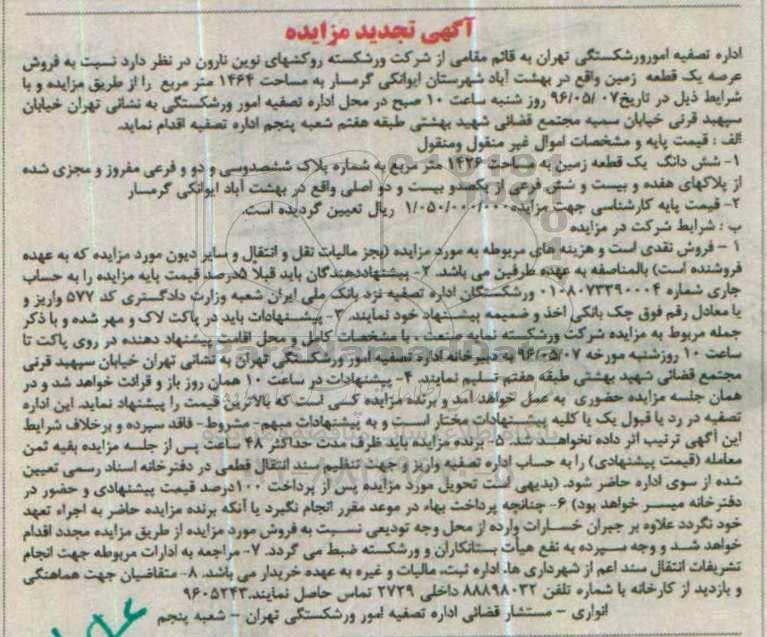 آگهی تجدید مزایده
اداره تصفیه امورورشکستگی تهران به قائم مقامی از شرکت ورشکسته روکشهای نوین نارون در نظر دارد نسبت به فروش
عرصه یک قطعه زمین واقع در بهشت آباد شهرستان ایوانکی گرمسار به مساحت ۱۴۶۴ متر مربع را از طریق مزایده و با
شرایط ذیل در تاریخ۹۶/۰۵/۰۷ روز شنبه ساعت ۱۰ صبح در محل اداره تصفیه امور ورشکستگی به نشانی تهران خیابان
سپهبد قرنی خیابان سمیه مجتمع قضائی شهید بهشتی طبقه هفتم شعبه پنجم اداره تصفیه اقدام نماید.
الف : قیمت پایه و مشخصات اموال غیر منقول ومنقول
۱- شش دانگ یک قطعه زمین به مساحت ۱۴۲۶ متر مربع به شماره پلاک ششصدوسی و دو و فرعی مفروز و مجزی شده
از پلاکهای هفده و بیست و شش فرعی از یکصدو بیست و دو اصلی واقع در بهشت آباد ایوانکی گرمسار
۲- قیمت پایه کارشناسی جهت مزایده۱/۰۵۰/۰۰۰/۰۰۰ ریال تعیین گردیده است.
ب : شرایط شرکت در مزایده
۱ - فروش نقدی است و هزینه های مربوطه به مورد مزایده (بجز مالیات نقل و انتقال و سایر دیون مورد مزایده که به عهده
فروشنده است) بالمناصفه به عهده طرفین می باشد. ۲- پیشنهاددهندگان باید قبلا ۵درصد قیمت پایه مزایده را به حساب
جاری شماره ۰۱۰۸۰۷۳۳۹۰۰۰۴ ورشکستگان اداره تصفیه نزد بانک ملی ایران شعبه وزارت دادگستری کد ۵۷۷ واریز و
یا معادل رقم فوق چک بانکی اخذ و ضمیمه پیشنهاد خود نمایند. ۳- پیشنهادات باید در پاکت لاک و مهر شده و با ذکر
جمله مربوط به مزایده شرکت ورشکسته نمایه صنعت ، با مشخصات کامل و محل اقامت پیشنهاد دهنده در روی پاکت تا
ساعت ۱۰ روزشنبه مورخه ۹۶/۰۵/۰۷ به دبیرخانه اداره تصفیه امور ورشکستگی تهران به نشانی تهران خیابان سپهبد قرنی
مجتمع قضائی شهید بهشتی طبقه هفتم تسلیم نمایند. ۴- پیشنهادات در ساعت ۱۰ همان روز باز و قرائت خواهد شد و در
همان جلسه مزایده حضوری به عمل خواهد آمد و برنده مزایده کسی است که بالاترین قیمت را پیشنهاد نماید. این اداره
تصفیه در رد یا قبول یک یا کلیه پیشنهادات مختار است و به پیشنهادات مبهم- مشروط- فاقد سپرده و برخلاف شرایط
این آگهی ترتیب اثر داده نخواهد شد. ۵- برنده مزایده باید ظرف مدت حداکثر ۴۸ ساعت پس از جلسه مزایده بقیه ثمن
معامله (قیمت پیشنهادی) را به حساب اداره تصفیه واریز و جهت تنظیم سند انتقال قطعی در دفترخانه اسناد رسمی تعیین
شده از سوی اداره حاضر شود. (بدیهی است تحویل مورد مزایده پس از پرداخت ۱۰۰درصد قیمت پیشنهادی و حضور در
دفترخانه میسر خواهد بود) ۶- چنانچه پرداخت بهاء در موعد مقرر انجام نگیرد یا آنکه برنده مزایده حاضر به اجراء تعهد
خود نگردد علاوه بر جبران خسارات وارده از محل وجه تودیعی نسبت به فروش مورد مزایده از طریق مزایده مجدد اقدام
خواهد شد و وجه سپرده به نفع هیأت بستانکاران و ورشکسته ضبط می گردد. ۷- مراجعه به ادارات مربوطه جهت انجام
تشریفات انتقال سند اعم از شهرداری ها، اداره ثبت، مالیات و غیره به عهده خریدار می باشد. ۸- متقاضیان جهت هماهنگی
و بازدید از کارخانه با شماره تلفن ۸۸۸۹۸۰۳۲ داخلی ۲۷۲۹ تماس حاصل نمایند.۹۶۰۵۲۴۳
انواری - مستشار قضائی اداره تصفیه امور ورشکستگی تهران - شعبه پنجم